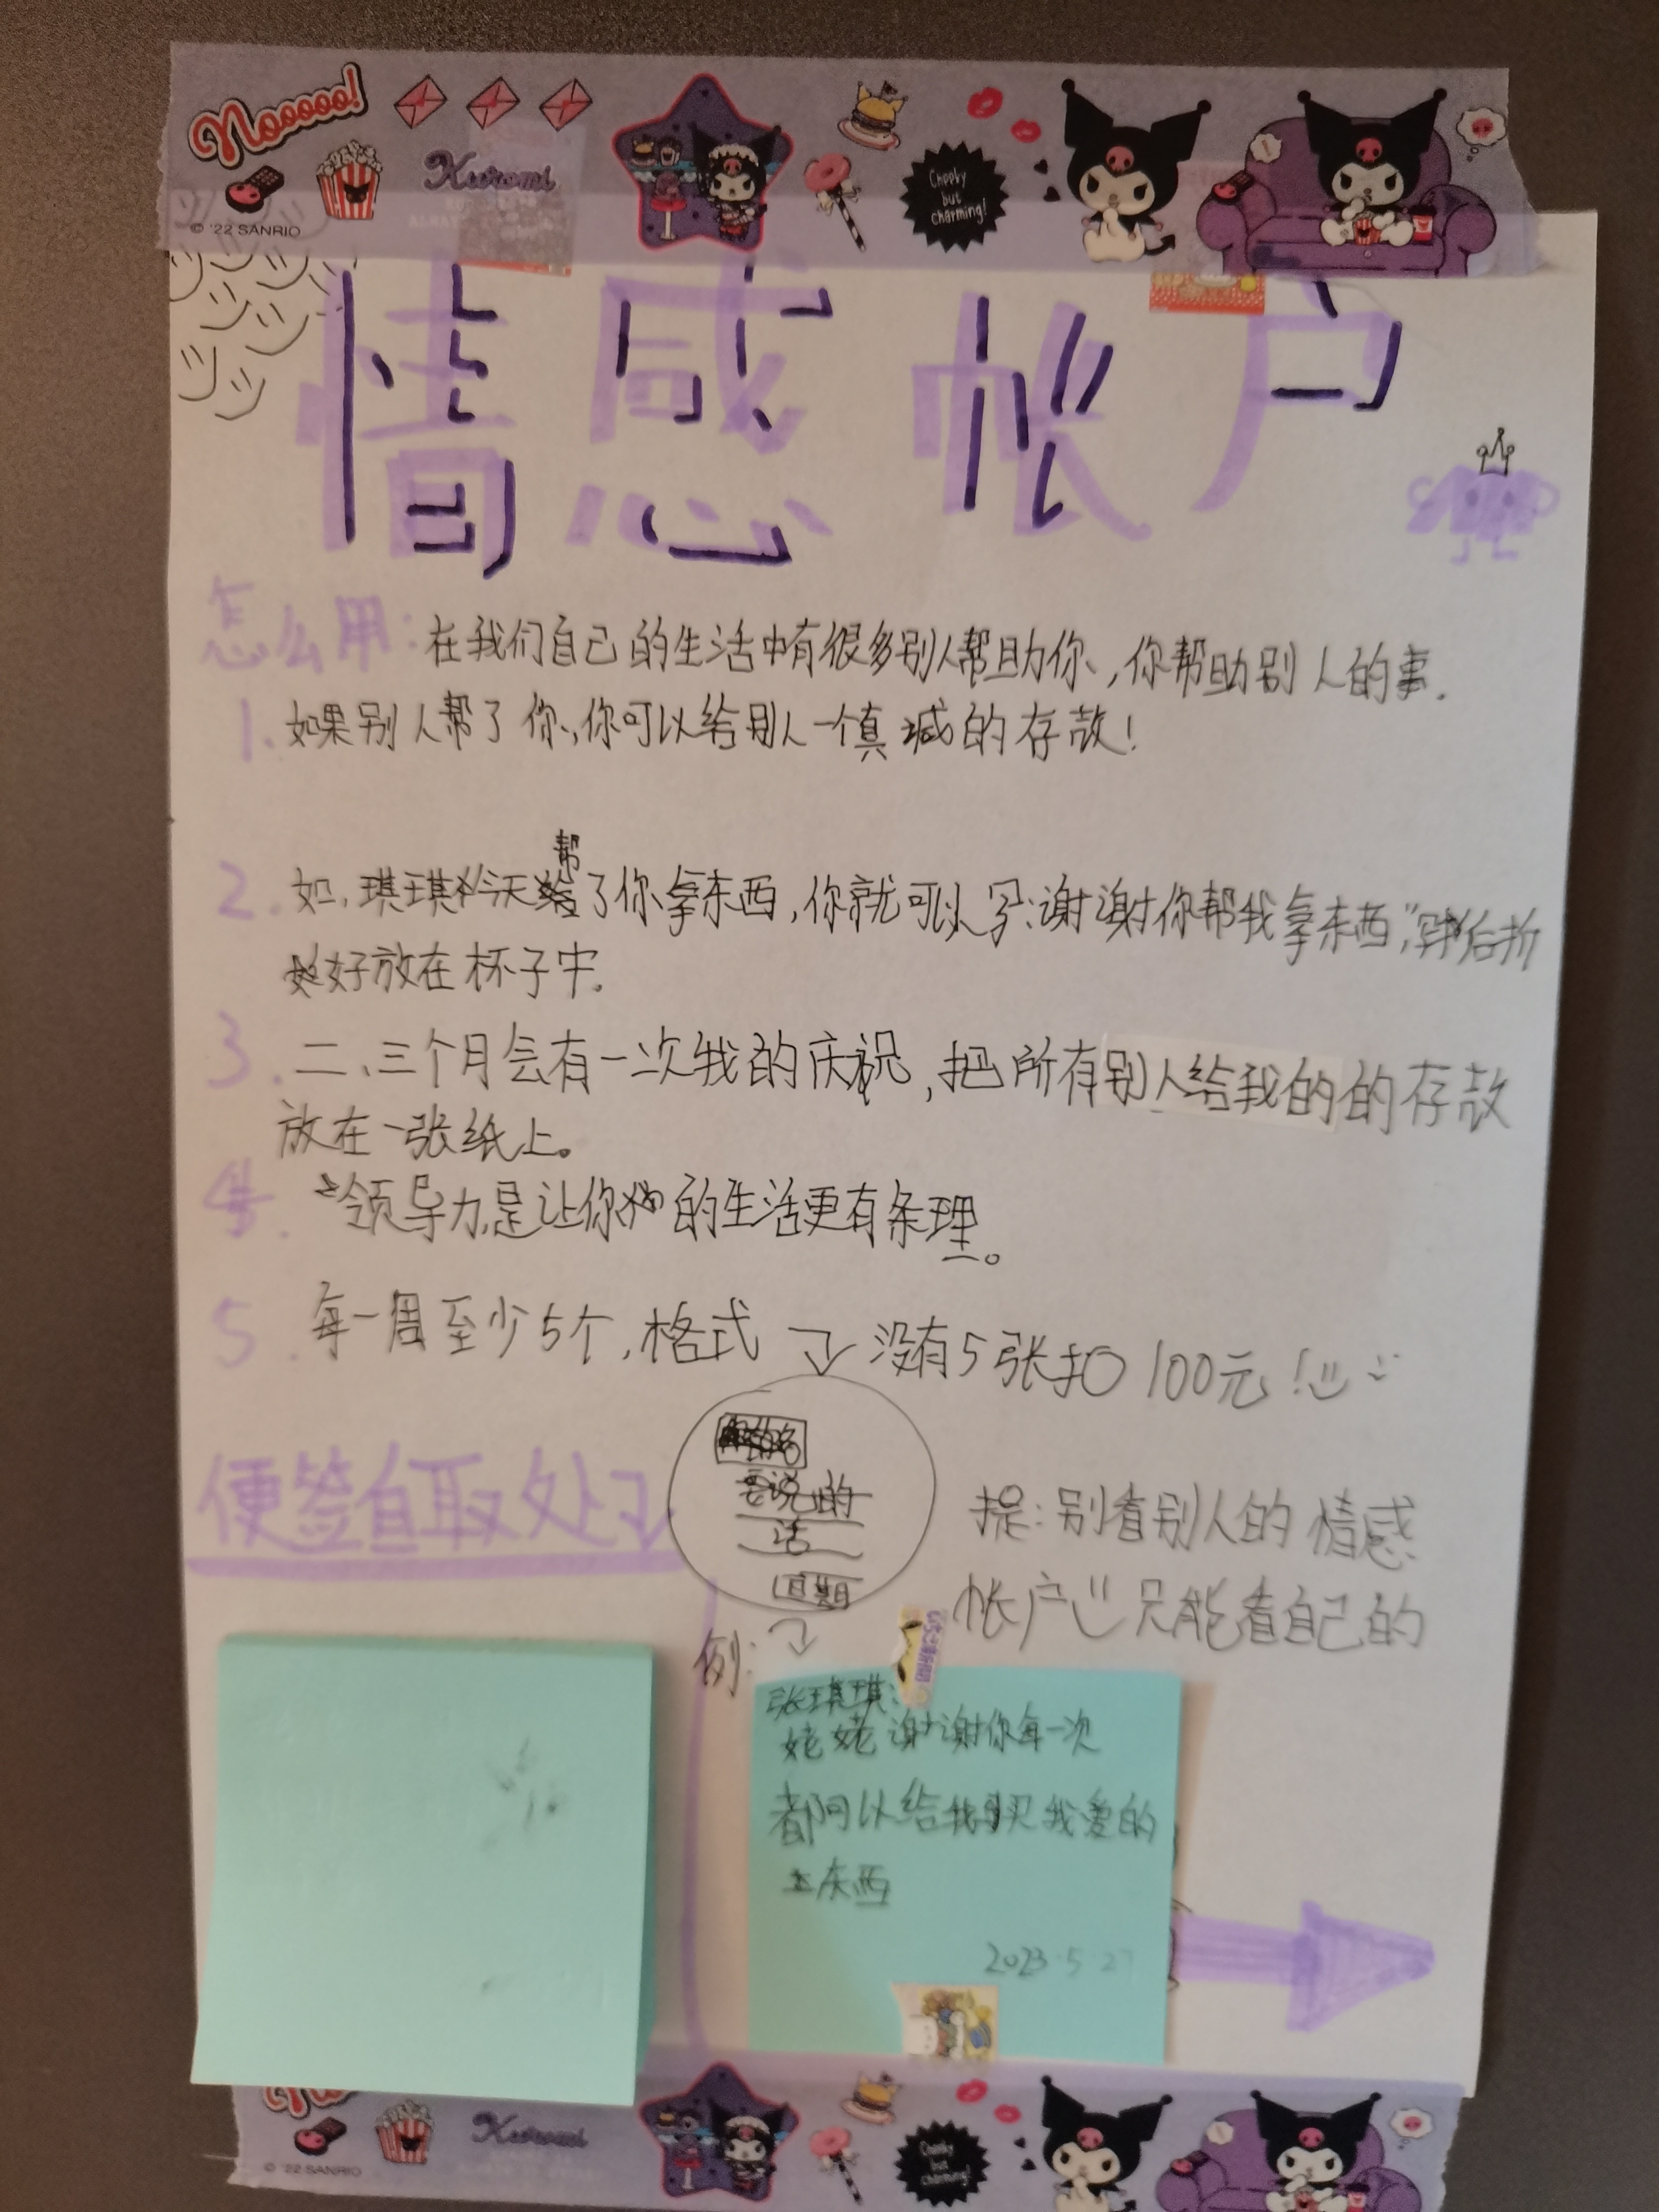 Nooooo!
Kuromi
Cheeky
but
charming!
© '22 SANRIO
情感帐户
怎么用：在我们自己的生活中有很多别人帮助你，你帮助别人的事．
1. 如果别人帮了你，你可以给别人一个真诚的存款！
帮
2. 如，琪琪今天了你拿东西，你就可以写：谢谢你帮我拿东西，”后折
好放在杯子中．
3. 二、三个月会有一次我的庆祝，把所有别人给我的的存款
放在一张纸上。
4. 领导力是让你的生活更有条理。
5. 每一周至少5个，格式 没有5张扣100元！
要说的
话
日期
便签自取处
提：别看别人的情感
帐户 只能看自己的
例：
张琪琪：
姥姥谢谢你每一次
都可以给我买我爱的
东西
2023·5·27
Kuromi
Cheeky
but
charming!
© '22 SANRIO